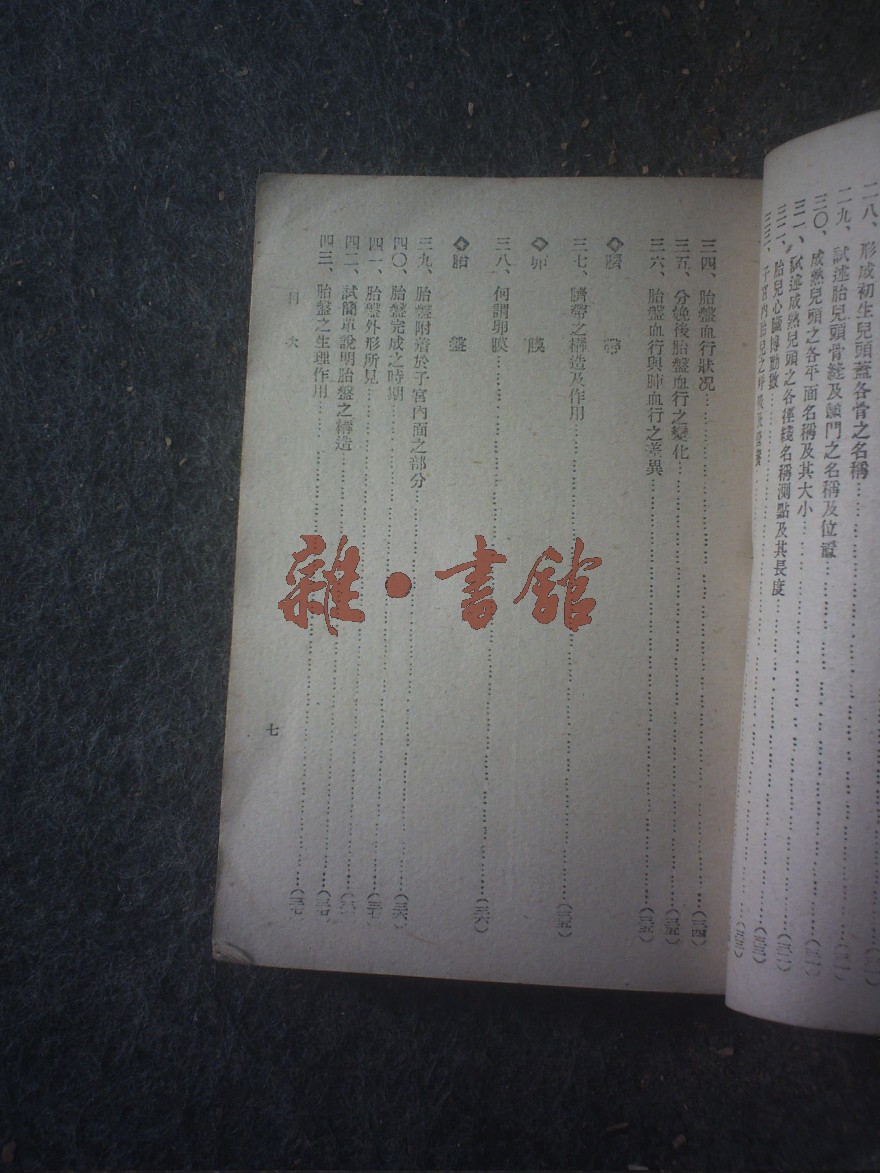 二八、形成初生兒頭蓋各骨之名稱
二九、試述胎兒頭骨縫及顖門之名稱及位置
三〇、成熟兒頭之各平面名稱及其大小
三一、試述成熟兒頭之各徑綫名稱測點及其長度
三二、胎兒心臟搏動數
三三、子宮內胎兒之呼吸及營養
三四、胎盤血行狀況……(三四)
三五、分娩後胎盤血行之變化……(三五)
三六、胎盤血行與肺血行之差異……(三五)
◆臍帶
三七、臍帶之構造及作用……(三五)
◆卵膜
三八、何謂卵膜……(三六)
◆胎盤
三九、胎盤附着於子宮內面之部分
四〇、胎盤完成之時期……(三六)
四一、胎盤外形所見……(三七)
四二、試簡單說明胎盤之構造
四三、胎盤之生理作用……(三七)
目次
七
雜·書館